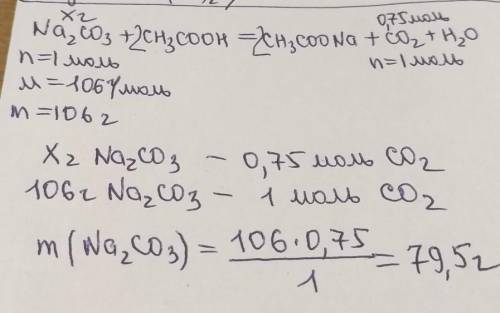 х г 0,75 моль
Na₂CO₃ + 2CH₃COOH = 2CH₃COONa + CO₂ + H₂O
n = 1 моль n = 1 моль
M = 106 г/моль
m = 106 г
X г Na₂CO₃ — 0,75 моль CO₂
106 г Na₂CO₃ — 1 моль CO₂
m (Na₂CO₃) = 106 · 0,75 / 1 = 79,5 г